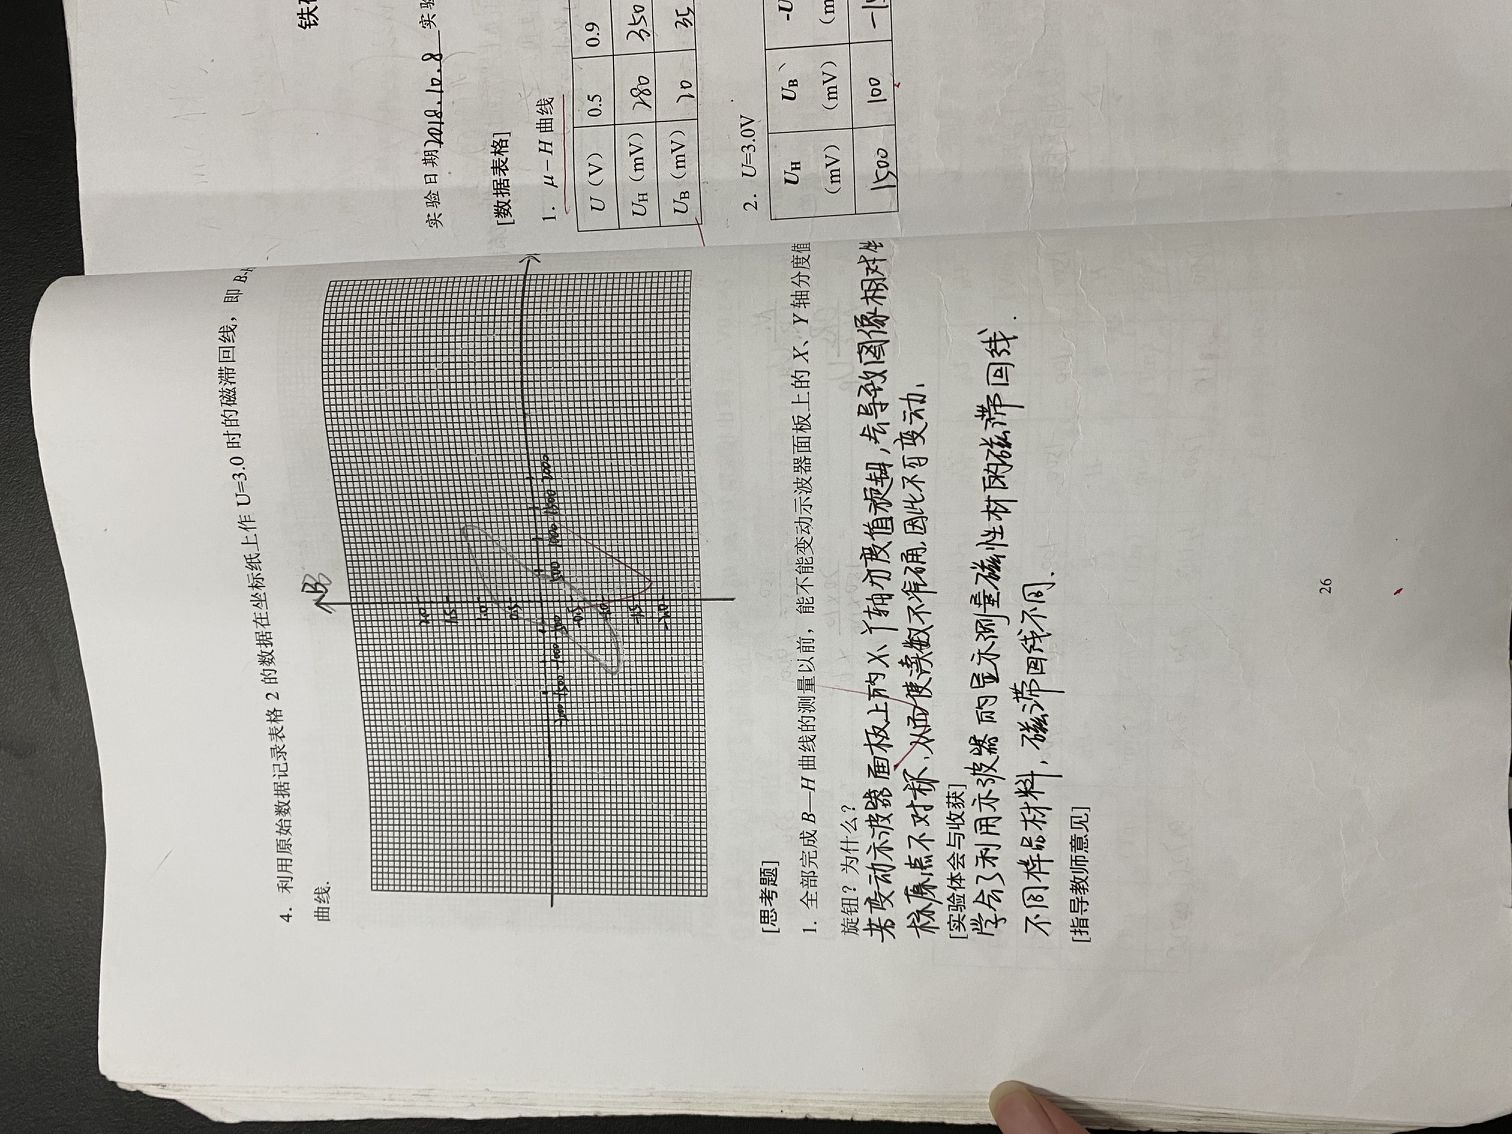 4．利用原始数据记录表格 2 的数据在坐标纸上作 U=3.0 时的磁滞回线，即 B-H
曲线.
B
2.0
1.5
1.0
0.5
500 1000 1500 2000
[思考题]
1. 全部完成 B—H 曲线的测量以前，能不能变动示波器面板上的 X、Y 轴分度值
旋钮？为什么？
若变动示波器面板上的X、Y轴分度值旋钮，会导致图像相对坐
标原点不对称，从而使读数不准确，因此不可变动.
[实验体会与收获]
学会了利用示波器的显示测量磁性材的磁滞回线.
不同样品材料，磁滞回线不同.
[指导教师意见]
26
铁磁
实验日期2018.10.8 实验
[数据表格]
1． μ－H 曲线
U（V） 0.5 0.9
UH（mV） 280 350
UB（mV） 20 35
2．U=3.0V
UH UB -U
（mV） （mV） （m
1500 100 -15